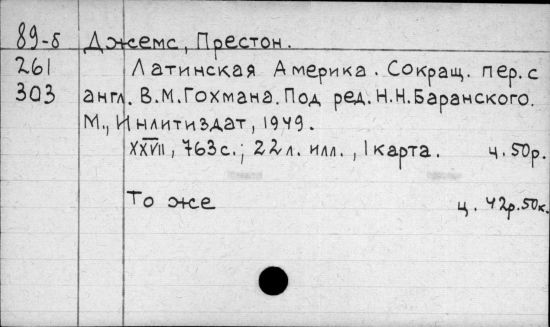 89-5 Джемс, Престон.
261 Латинская Америка. Сокращ. пер. с
303 англ. В.М.Гохмана. Под ред. Н.Н.Баранского.
М., Инлитиздат, 1949.
XXVII, 763с.; 22л. илл., 1 карта. ц. 50р.
То же ц. 42р.50к.